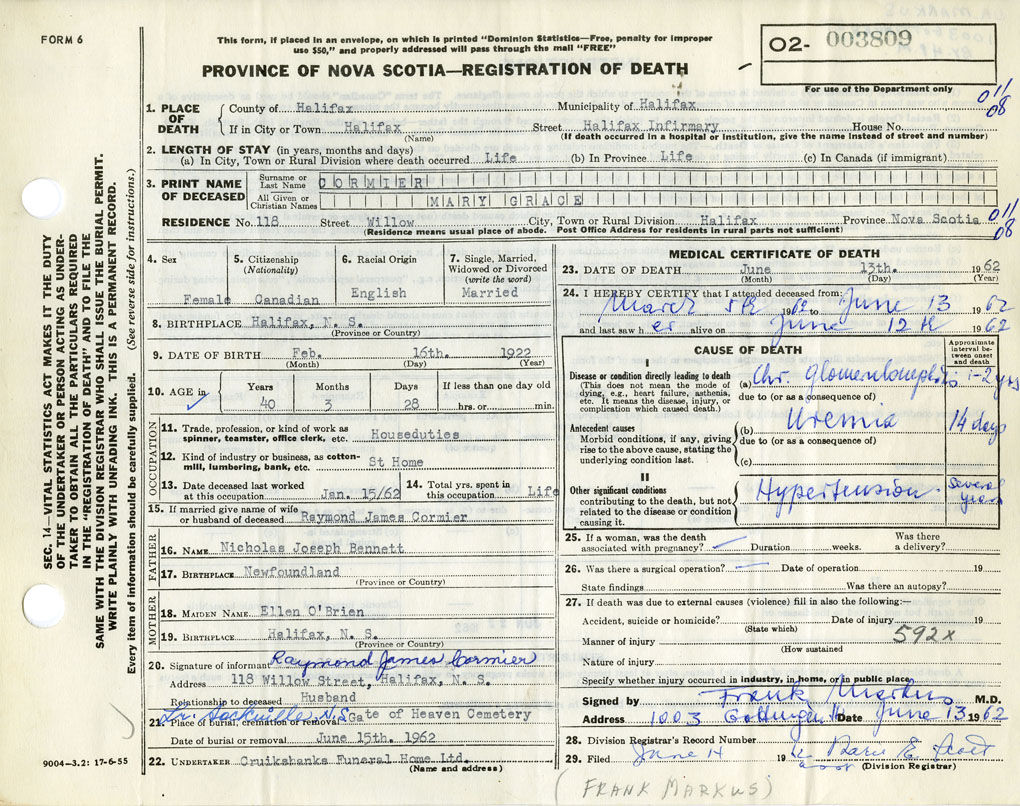 FORM 6
This form, if placed in an envelope, on which is printed "Dominion Statistics—Free, penalty for improper
use $50," and properly addressed will pass through the mail "FREE"
PROVINCE OF NOVA SCOTIA—REGISTRATION OF DEATH
O2- 003809
For use of the Department only
011/08
1. PLACE OF DEATH
County of Halifax Municipality of Halifax
If in City or Town Halifax Street Halifax Infirmary House No.
(Name) (If death occurred in a hospital or institution, give the name instead of street and number)
2. LENGTH OF STAY (in years, months and days)
(a) In City, Town or Rural Division where death occurred Life (b) In Province Life (c) In Canada (if immigrant)
3. PRINT NAME OF DECEASED
Surname or Last Name CORMIER
All Given or Christian Names MARY GRACE
RESIDENCE No. 118 Street Willow City, Town or Rural Division Halifax Province Nova Scotia
011/08
(Residence means usual place of abode. Post Office Address for residents in rural parts not sufficient)
4. Sex Female
5. Citizenship (Nationality) Canadian
6. Racial Origin English
7. Single, Married, Widowed or Divorced (write the word) Married
8. BIRTHPLACE Halifax, N. S.
(Province or Country)
9. DATE OF BIRTH Feb. 16th. 1922
(Month) (Day) (Year)
10. AGE in Years 40 Months 3 Days 28 If less than one day old hrs. or min.
OCCUPATION
11. Trade, profession, or kind of work as spinner, teamster, office clerk, etc. Houseduties
12. Kind of industry or business, as cotton-mill, lumbering, bank, etc. St Home
13. Date deceased last worked at this occupation Jan. 15/62
14. Total yrs. spent in this occupation Life
15. If married give name of wife or husband of deceased Raymond James Cormier
FATHER
16. NAME Nicholas Joseph Bennett
17. BIRTHPLACE Newfoundland
(Province or Country)
MOTHER
18. MAIDEN NAME Ellen O'Brien
19. BIRTHPLACE Halifax, N. S.
(Province or Country)
20. Signature of informant Raymond James Cormier
Address 118 Willow Street, Halifax, N. S.
Relationship to deceased Husband
21. Place of burial, cremation or removal Lr. Sackville N.S Gate of Heaven Cemetery
Date of burial or removal June 15th. 1962
22. UNDERTAKER Cruikshanks Funeral Home Ltd.
(Name and address)
9004-3.2: 17-6-55
SEC. 14—VITAL STATISTICS ACT MAKES IT THE DUTY
OF THE UNDERTAKER OR PERSON ACTING AS UNDER-
TAKER TO OBTAIN ALL THE PARTICULARS REQUIRED
IN THE "REGISTRATION OF DEATH" AND TO FILE THE
SAME WITH THE DIVISION REGISTRAR WHO SHALL ISSUE THE BURIAL PERMIT.
WRITE PLAINLY WITH UNFADING INK. THIS IS A PERMANENT RECORD.
Every item of information should be carefully supplied. (See reverse side for instructions.)
MEDICAL CERTIFICATE OF DEATH
23. DATE OF DEATH June 13th. 1962
(Month) (Day) (Year)
24. I HEREBY CERTIFY that I attended deceased from:
March 5th 1962 to June 13 1962
and last saw her alive on June 12th 1962
CAUSE OF DEATH
Approximate interval between onset and death
I
Disease or condition directly leading to death
(This does not mean the mode of dying, e.g., heart failure, asthenia, etc. It means the disease, injury, or complication which caused death.)
(a) Chr. Glomerulonephritis 1-2 yrs
due to (or as a consequence of)
Antecedent causes
Morbid conditions, if any, giving rise to the above cause, stating the underlying condition last.
(b) Uremia 14 days
due to (or as a consequence of)
(c)
II
Other significant conditions
contributing to the death, but not related to the disease or condition causing it.
Hypertension. Several years
25. If a woman, was the death associated with pregnancy? Duration weeks. Was there a delivery?
26. Was there a surgical operation? Date of operation 19
State findings Was there an autopsy?
27. If death was due to external causes (violence) fill in also the following:—
Accident, suicide or homicide? Date of injury 19
(State which)
592x
Manner of injury
(How sustained
Nature of injury
Specify whether injury occurred in industry, in home, or in public place
Signed by Frank Markus M.D.
Address 1003 Gottingen St Date June 13 1962
28. Division Registrar's Record Number
29. Filed June 14 1962
(Division Registrar)
(FRANK MARKUS)